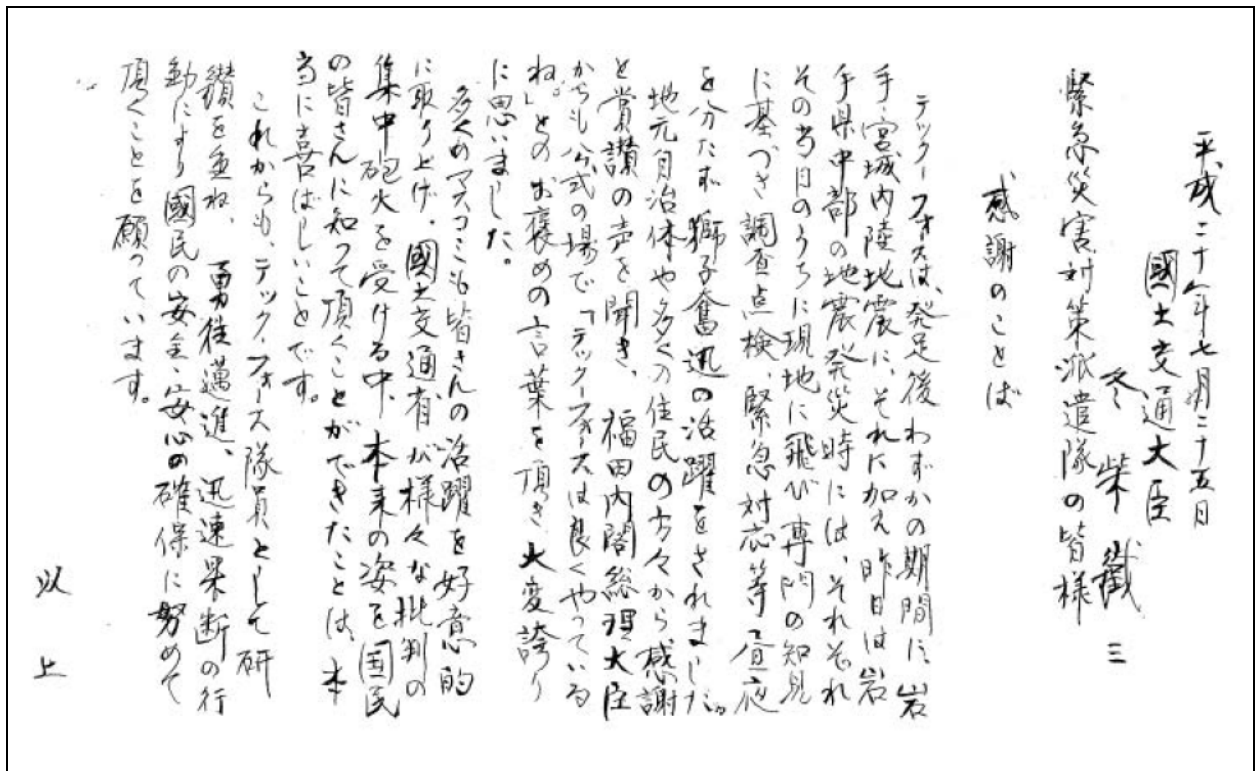 平成二十年七月二十五日
國土交通大臣
冬柴鐵三
緊急災害対策派遣隊の皆様
感謝のことば
テックフォースは、発足後わずかの期間に、岩
手・宮城内陸地震に、それに加え昨日は岩
手県中部の地震発災時には、それぞれ
その当日のうちに現地に飛び専門の知見
に基づき調査点検、緊急対応等昼夜
を分たず獅子奮迅の活躍をされました。
地元自治体や多くの住民の方々から感謝
と賞讃の声を聞き、福田内閣総理大臣
からも公式の場で「テックフォースは良くやっている
ね。」とのお褒めの言葉を頂き、大変誇り
に思いました。
多くのマスコミも皆さんの活躍を好意的
に取り上げ、國土交通省が様々な批判の
集中砲火を受ける中、本来の姿を国民
の皆さんに知って頂くことができたことは、本
当に喜ばしいことです。
これからも、テック・フォース隊員として研
鑽を重ね、勇往邁進、迅速果断の行
動により國民の安全・安心の確保に努めて
頂くことを願っています。
以上